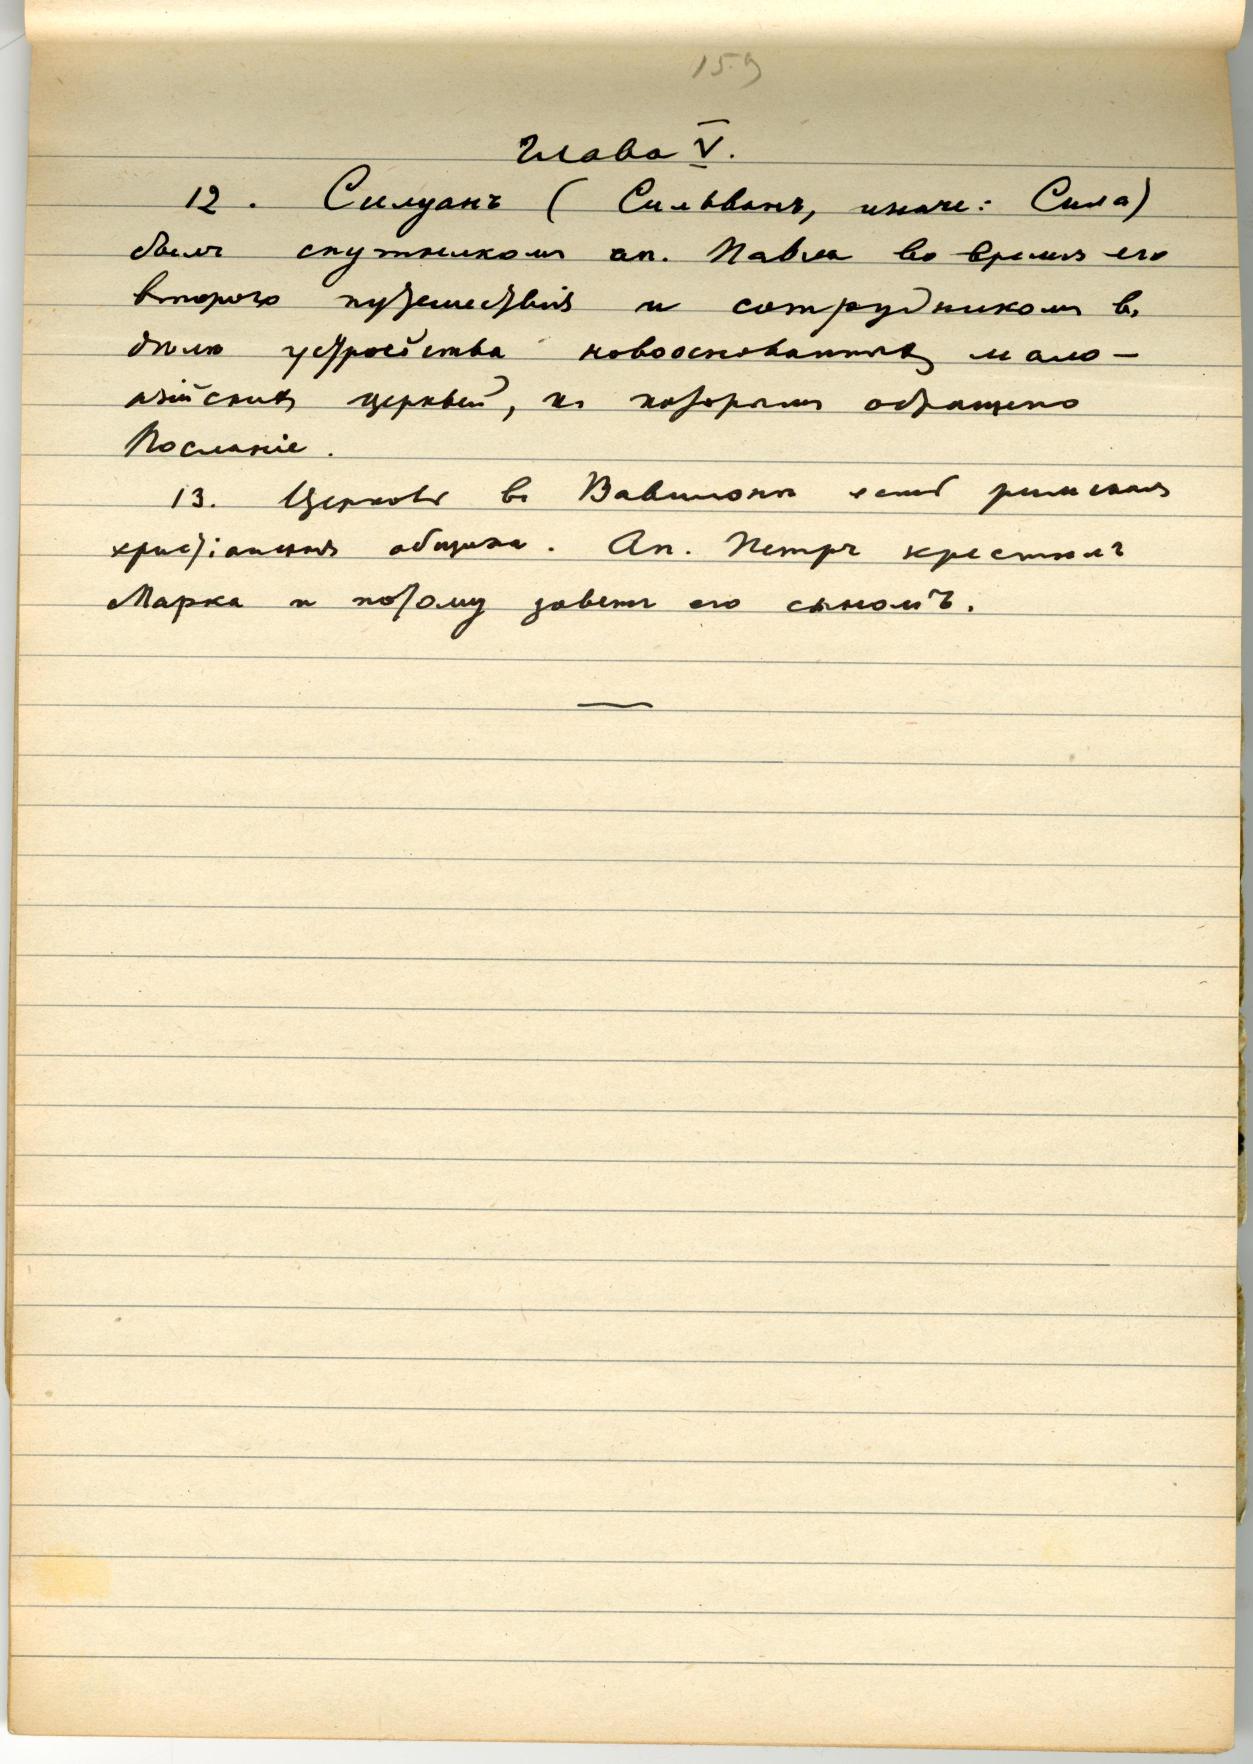 159
Глава V.
12. Силуанъ ( Сильванъ, иначе: Сила)
былъ спутникомъ ап. Павла во время его
второго путешествія и сотрудникомъ въ
дѣлѣ устройства новооснованныхъ мало-
азійскихъ церквей, къ которымъ обращено
Посланіе.
13. Церковь въ Вавилонѣ есть римская
христіанская община. Ап. Петръ крестилъ
Марка и потому зоветъ его сыномъ.